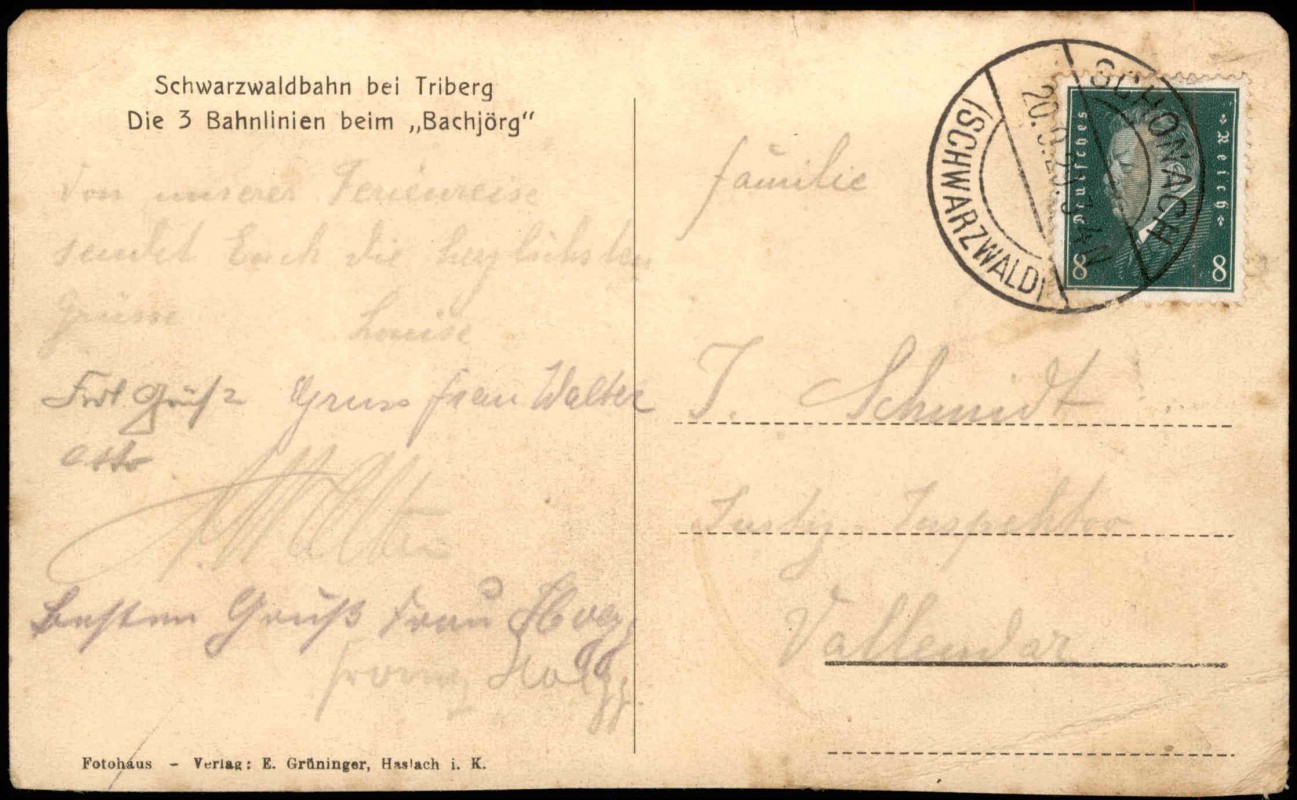 Schwarzwaldbahn bei Triberg
Die 3 Bahnlinien beim „Bachjörg“
Von unserer Ferienreise
sendet Euch die herzlichsten
Grüsse Louise
Gruss Frau Walter
Otto
Besten Gruß Frau
Fotohaus – Verlag: E. Grüninger, Haslach i. K.
SCHONACH
(SCHWARZWALD)
Deutsches Reich
8 8
Familie
J. Schmidt
Justiz-Inspektor
Vallendar